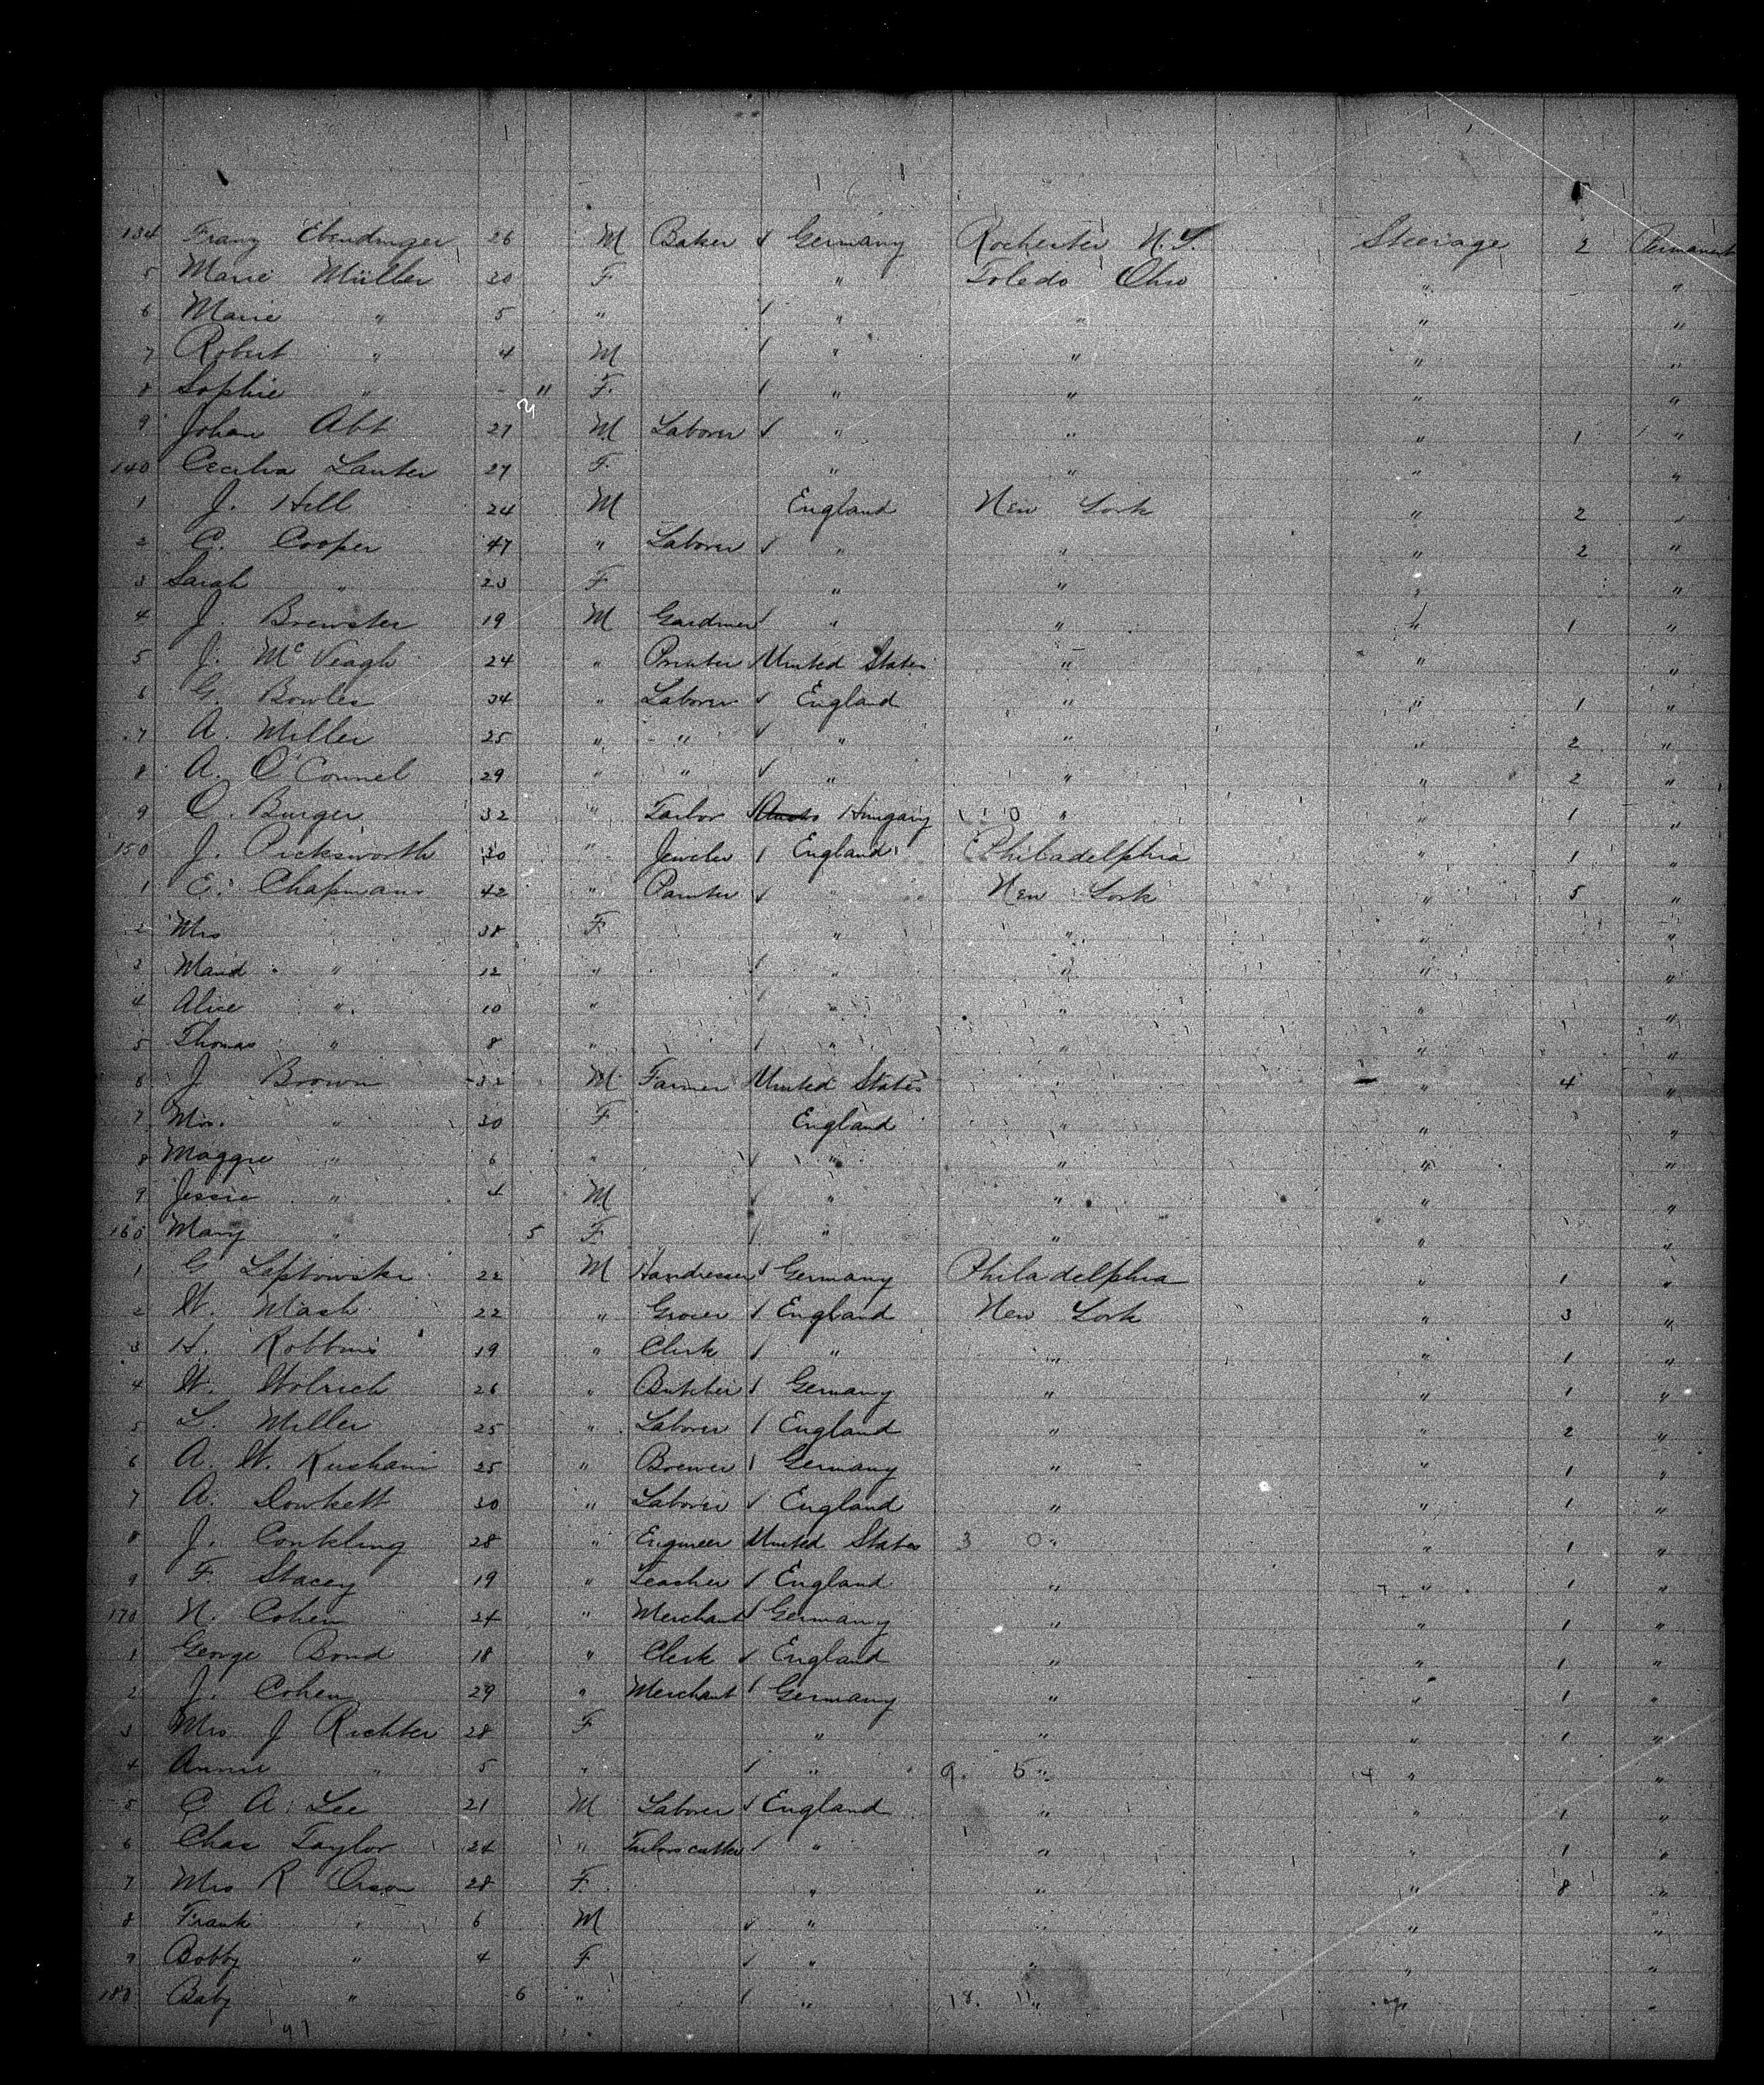 134 Franz Ebendinger 26 M Baker ✓ Germany Rochester N.Y. Steerage 2 Permanent
5 Marie Müller 20 F " Toledo Ohio " "
6 Marie " 5 " ✓ " " " "
7 Robert " 4 M ✓ " " " "
8 Sophie " - 11 F. ✓ " " " "
9 Johan Abt 27 M Laborer ✓ " " " 1 "
140 Cecilia Lauter 27 F. " " " "
1 J. Hill 24 M England New York " 2 "
2 C. Cooper 47 " Laborer ✓ " " " 2 "
3 Sarah " 23 F " " " "
4 J. Brewster 19 M Gardiner ✓ " " " 1 "
5 J. McVeagh 24 " Printer ✓ United States " " "
6 G. Bowles 34 " Laborer ✓ England " " 1 "
7 A. Miller 25 " " ✓ " " " 2 "
8 A. O'Connel 29 " " ✓ " " " 2 "
9 O. Burger 32 " Tailor ✓ Hungary " " 1 "
150 J. Picksworth 30 " Jeweler ✓ England Philadelphia " 1 "
1 E. Chapman 42 " Painter ✓ " New York " 5 "
2 Mrs " 38 F. " " " "
3 Maud " 12 " ✓ " " " "
4 Alice " 10 " ✓ " " " "
5 Thomas " 8 " ✓ " " " "
6 J Brown 32 M Farmer ✓ United States " " 4 "
7 Mrs. " 30 F England " " "
8 Maggie " 6 " ✓ " " " "
9 Jessie " 4 M ✓ " " " "
160 Mary " 5 F. ✓ " " " "
1 G Leptowski 22 M Hairdresser ✓ Germany Philadelphia " 1 "
2 W. Mash 22 " Grocer ✓ England New York " 3 "
3 H. Robbins 19 " Clerk ✓ " " " 1 "
4 W. Wolrich 26 " Butcher ✓ Germany " " 1 "
5 L. Miller 25 " Laborer ✓ England " " 2 "
6 A. W. 25 " Brewer ✓ Germany " " 1 "
7 A. Dowkett 30 " Laborer ✓ England " " 1 "
8 J. Conkling 28 " Engineer United States 3 0 " " 1 "
9 F. Stacey 19 " Teacher ✓ England " " 1 "
170 N. Cohen 24 " Merchant ✓ Germany " " 1 "
1 George Bond 18 " Clerk ✓ England " " 1 "
2 J. Cohen 29 " Merchant ✓ Germany " " 1 "
3 Mrs J Richter 28 F " " " 1 "
4 Annie " 5 " ✓ " 9. 5 " 14 " "
5 C. A. Lee 21 M Laborer ✓ England " " 1 "
6 Chas Taylor 24 " Tailors cutter ✓ " " " 1 "
7 Mrs R 28 F. " " " 8 "
8 Frank " 6 M ✓ " " " "
9 Bobby " 4 F ✓ " " " "
180 Baby " 6 " ✓ " 18. 11 " " "